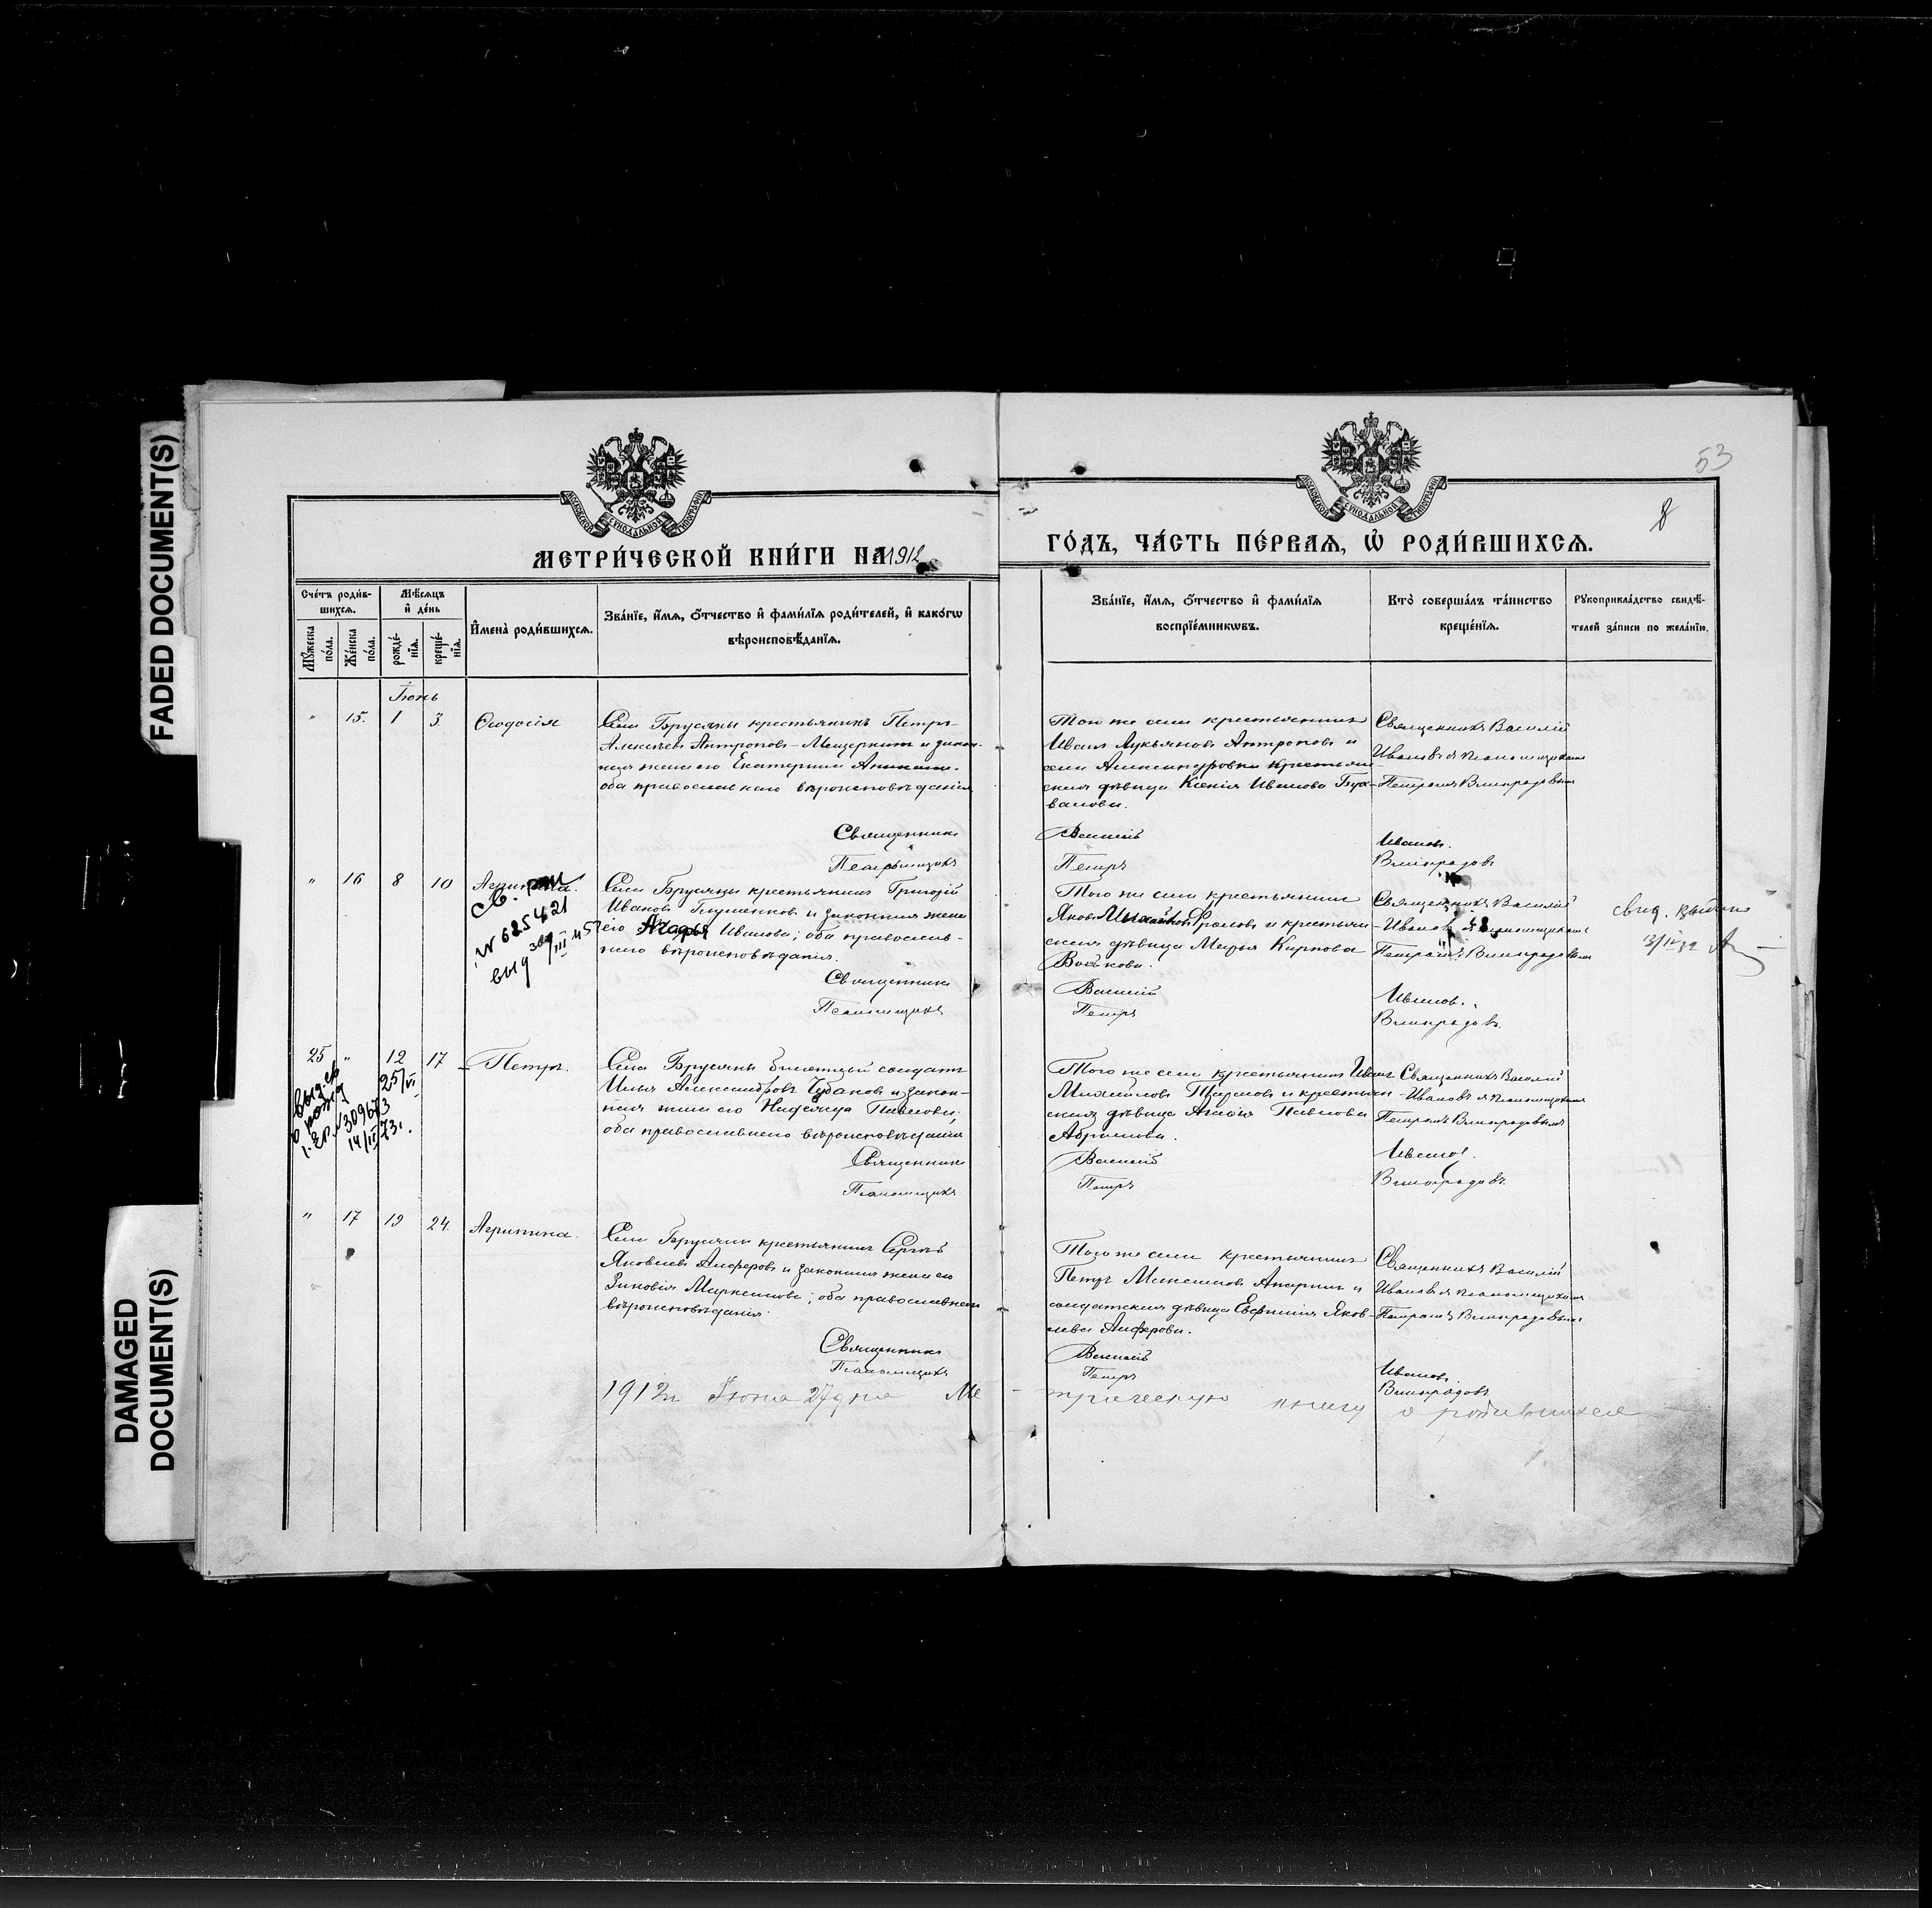 FADED DOCUMENT(S)
DAMAGED
DOCUMENT(S)
53
8
МОСКОВСКОЙ СѴНОДАЛЬНОЙ ТИПОГРАФІИ
МОСКОВСКОЙ СѴНОДАЛЬНОЙ ТИПОГРАФІИ
МЕТРИ́ЧЕСКОЙ КНИ́ГИ НА 1912
ГО́ДЪ, ЧА́СТЬ ПЕ́РВАѦ, Ѡ҆ РОДИ́ВШИХСѦ.
Сче́тъ роди́в-
шихсѧ.
Мꙋ́жеска
по́ла.
Же́нска
по́ла.
Мѣ́сѧцъ
и҆ де́нь
рожде́-
нїѧ.
креще́-
нїѧ.
И҆мена̀ роди́вшихсѧ.
Зва́нїе, и҆́мѧ, ѻ҆́тчество и҆ фами́лїѧ роди́телей, и҆ како́гѡ
вѣроисповѣ́данїѧ.
Зва́нїе, и҆́мѧ, ѻ҆́тчество и҆ фами́лїѧ
воспрїе́мникѡвъ.
Кто̀ соверша́лъ та́инство
креще́нїѧ.
Рꙋкоприкла́дство свидѣ́-
телей за́писи по жела́нїю.
Іюнь
" 15. 1 3 Ѳеодосія
Села Брусяны крестьянинъ Петръ
Алексѣевъ Антроповъ-Мещеркинъ и закон-
ная жена его Екатерина
оба православнаго вѣроисповѣданія
Священникъ
Псаломщикъ
Того же села крестьянинъ
Иванъ Лукьяновъ Антроповъ и
села Александровки крестьян-
ская дѣвица Ксенія Иванова
Василій
Петръ
Священникъ Василій
Ивановъ и псаломщикомъ
Петромъ Виноградовымъ
Ивановъ.
Виноградовъ
" 16 8 10 Агрипина.
Св.
№ 625421
выд 30/III 45
Села Брусяны крестьянинъ Григорій
Ивановъ Глушенковъ и законная жена
его Агафья Иванова; оба православ-
наго вѣроисповѣданія.
Священникъ
Псаломщикъ
Того же села крестьянинъ
Яковъ Михайловъ Фроловъ и крестьян-
ская дѣвица Марья Карпова
Василій
Петръ
Священникъ Василій
Ивановъ и псаломщикомъ
Петромъ Виноградовымъ
Ивановъ.
Виноградовъ.
свид. выдано
25 " 12 17 Петръ.
25/VI
выд. св
о рожд
309673
14/II 73г.
Села Брусяны билетный солдатъ
Илья Александровъ Чубаковъ и закон-
ная жена его Павлова;
оба православнаго вѣроисповѣданія
Священникъ
Псаломщикъ
Того же села крестьянинъ Иванъ
Михайловъ Тарасовъ и крестьян-
ская дѣвица Павлова
Абрамова.
Василій
Петръ
Священникъ Василій
Ивановъ и псаломщикомъ
Петромъ Виноградовымъ
Ивановъ.
Виноградовъ.
" 17 19 24. Агрипина.
Села Брусяны крестьянинъ Сергѣй
Яковлевъ Алферовъ и законная жена его
Зиновія Маркелова; оба православнаго
вѣроисповѣданія.
Священникъ
Псаломщикъ
Того же села крестьянинъ
Петръ и
солдатская дѣвица Евфимія Яков-
лева Алферова.
Василій
Петръ
Священникъ Василій
Ивановъ и псаломщикомъ
Петромъ Виноградовымъ
Ивановъ.
Виноградовъ.
1912 г Іюня 27 дня Ме-
трическую книгу о родившихся